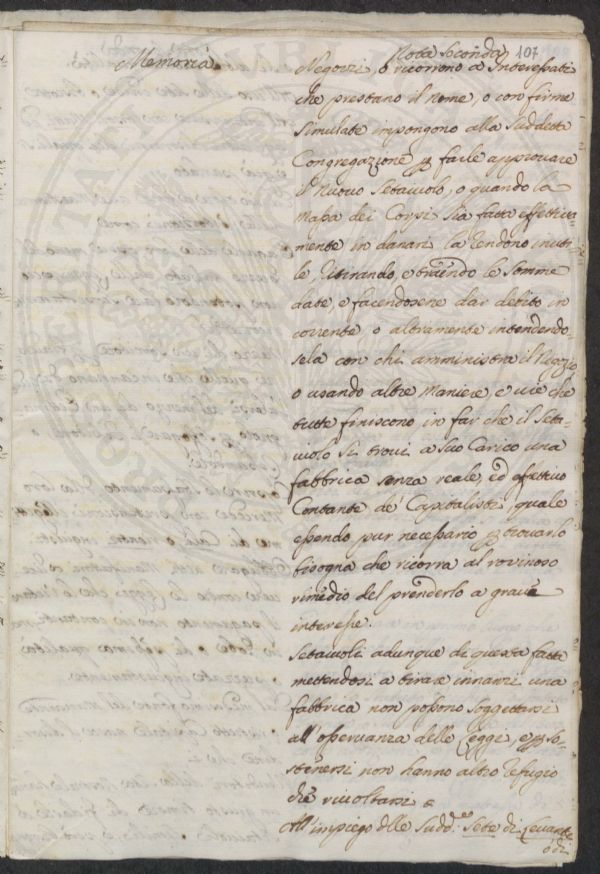 Nota Seconda 107
Memoria
Negozzi, o ricorrono a Interessati
che prestano il nome, o con firme
simulate impongono alla suddetta
Congregazione p far le approvare
il nuovo Setaiuolo, o quando la
Mapa dei Corpi sia fatta effettiva=
mente in danari la rendono inuti
le ritirando, e traendo le somme
date, e facendosene dar debito in
corrente, o altramente intendendo=
sela con chi amministra il Negozio
o usando altre maniere e vie che
tutte finiscono in far che il Seta=
iuolo si trovi a suo Carico una
fabbrica senza reale, ed effettivo
Contante de' Capitalisti, quale
essendo pur necessario p trovarlo
bisogna che ricorra al rovinoso
rimedio del prenderlo a grave
interesse.
Setaiuoli adunque di questa fatta
mettendosi a tirare innanzi una
fabbrica non possono soggettarsi
all'osservanza delle Leggi, e p so=
stenersi non hanno altro refugio
che rivoltarsi
All'impiego dlle sudd.e Sete di Levante
o di